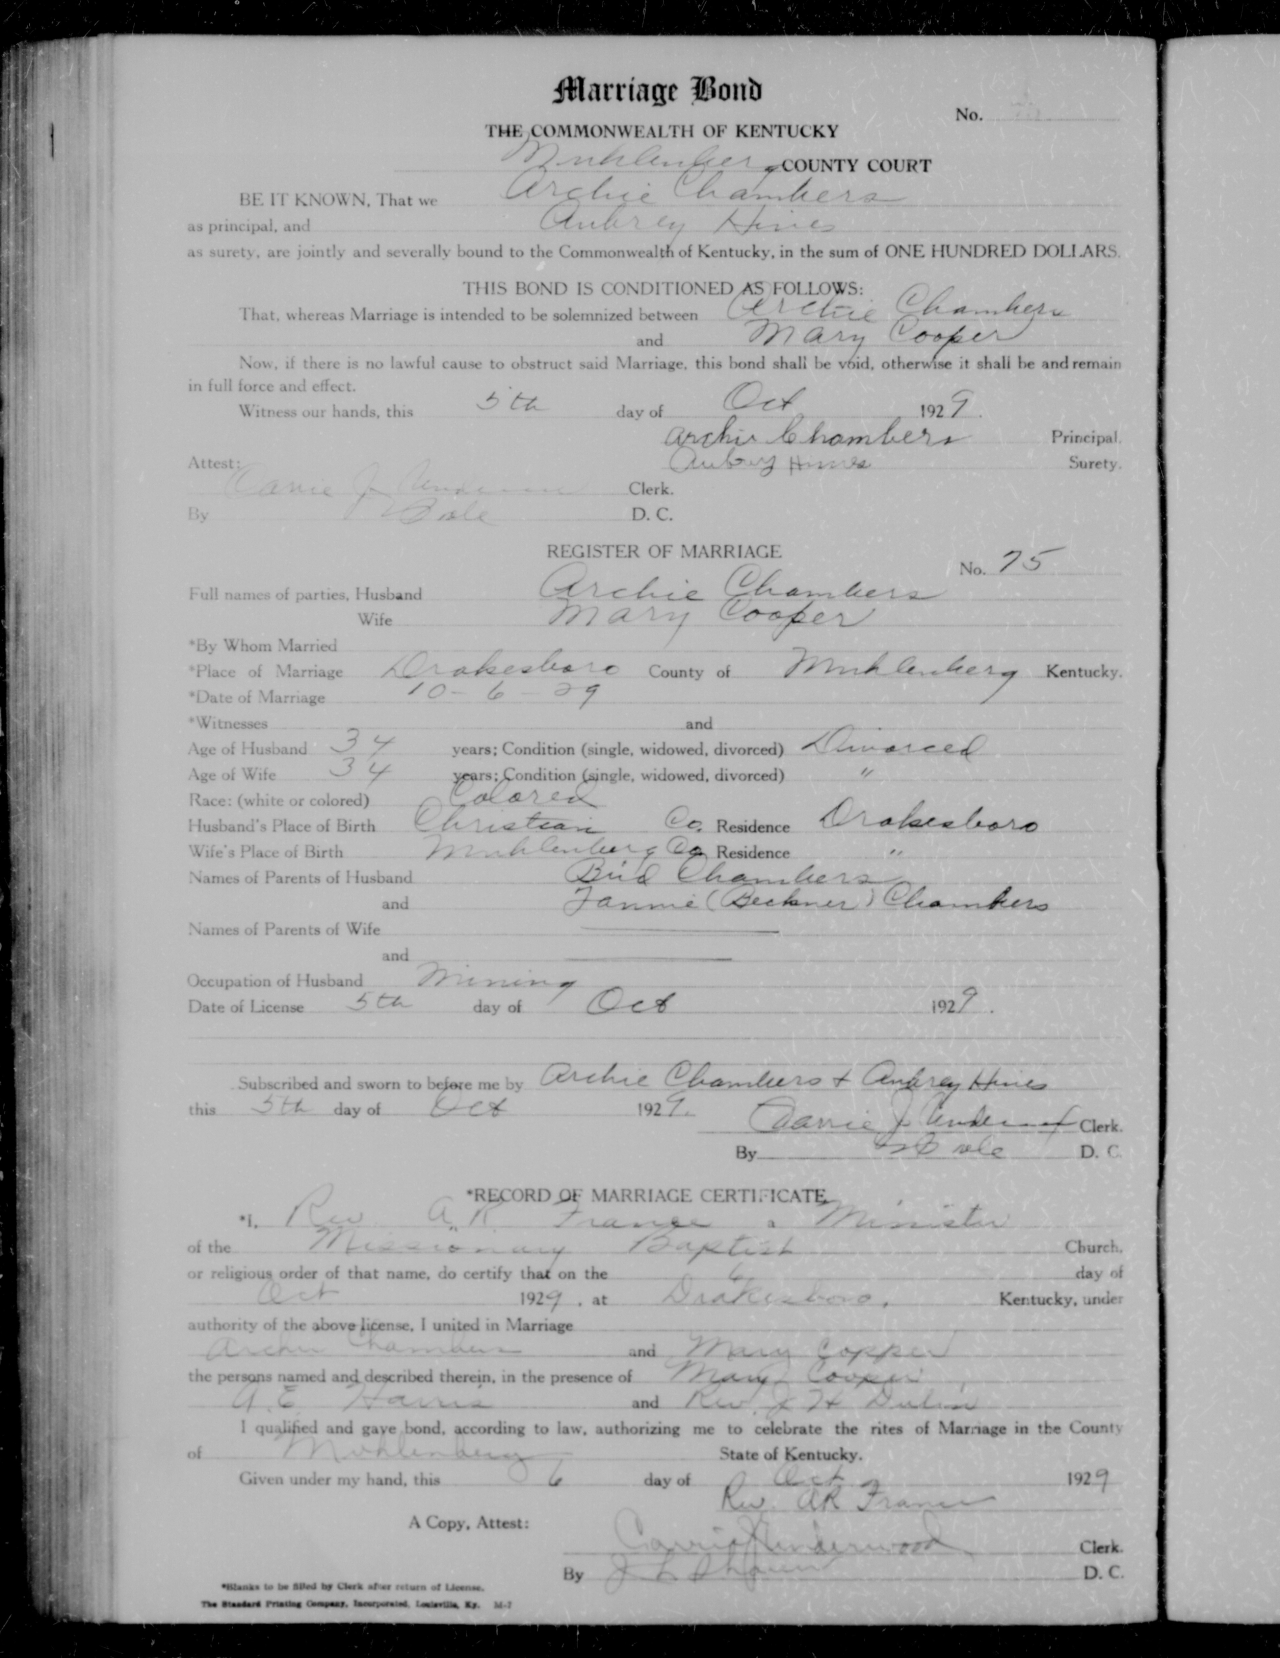 Marriage Bond
No.
THE COMMONWEALTH OF KENTUCKY
Muhlenberg COUNTY COURT
BE IT KNOWN, That we Archie Chambers
as principal, and Aubrey Hines
as surety, are jointly and severally bound to the Commonwealth of Kentucky, in the sum of ONE HUNDRED DOLLARS.
THIS BOND IS CONDITIONED AS FOLLOWS:
That, whereas Marriage is intended to be solemnized between Archie Chambers
and Mary Cooper
Now, if there is no lawful cause to obstruct said Marriage, this bond shall be void, otherwise it shall be and remain
in full force and effect.
Witness our hands, this 5th day of Oct 1929.
Archie Chambers Principal.
Attest: Aubrey Hines Surety.
Carrie J Clerk.
By D. C.
REGISTER OF MARRIAGE
No. 75
Full names of parties, Husband Archie Chambers
Wife Mary Cooper
*By Whom Married
*Place of Marriage Drakesboro County of Muhlenberg Kentucky.
*Date of Marriage 10-6-29
*Witnesses and
Age of Husband 34 years; Condition (single, widowed, divorced) Divorced
Age of Wife 34 years; Condition (single, widowed, divorced) "
Race: (white or colored) Colored
Husband's Place of Birth Christian Co. Residence Drakesboro
Wife's Place of Birth Muhlenberg Co Residence "
Names of Parents of Husband Bud Chambers
and Fannie (Beckner) Chambers
Names of Parents of Wife
and
Occupation of Husband Mining
Date of License 5th day of Oct 1929.
Subscribed and sworn to before me by Archie Chambers + Aubrey Hines
this 5th day of Oct 1929.
Carrie J Clerk.
By D. C.
*RECORD OF MARRIAGE CERTIFICATE
*I, Rev. A.R. France a Minister
of the Missionary Baptist Church,
or religious order of that name, do certify that on the 6 day of
Oct 1929, at Drakesboro, Kentucky, under
authority of the above license, I united in Marriage
Archie Chambers and Mary Copper
the persons named and described therein, in the presence of Mary Cooper,
A. E. Harris and Rev. J. H. Dulin
I qualified and gave bond, according to law, authorizing me to celebrate the rites of Marriage in the County
of Muhlenberg State of Kentucky.
Given under my hand, this 6 day of Oct 1929
Rev. AR France
A Copy, Attest:
Carrie J Underwood Clerk.
By D. C.
*Blanks to be filled by Clerk after return of License.
The Standard Printing Company, Incorporated, Louisville, Ky. M-7